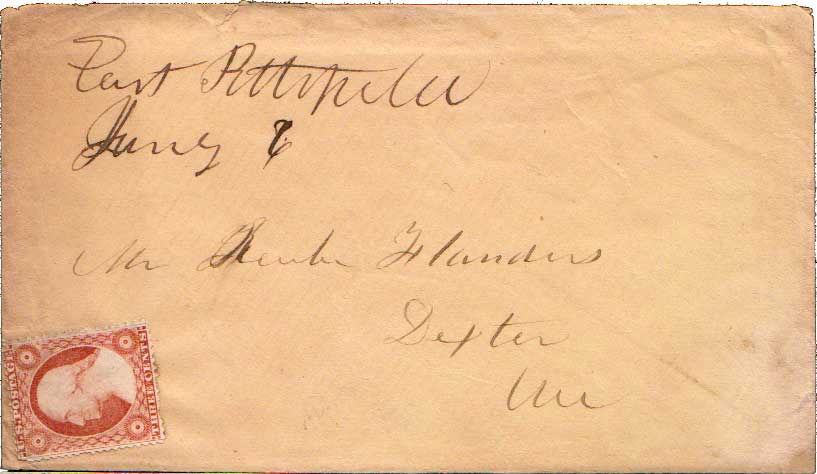 East Pittsfield
Mr Reuben Flanders
Dexter
Me
U.S. POSTAGE
THREE CENTS